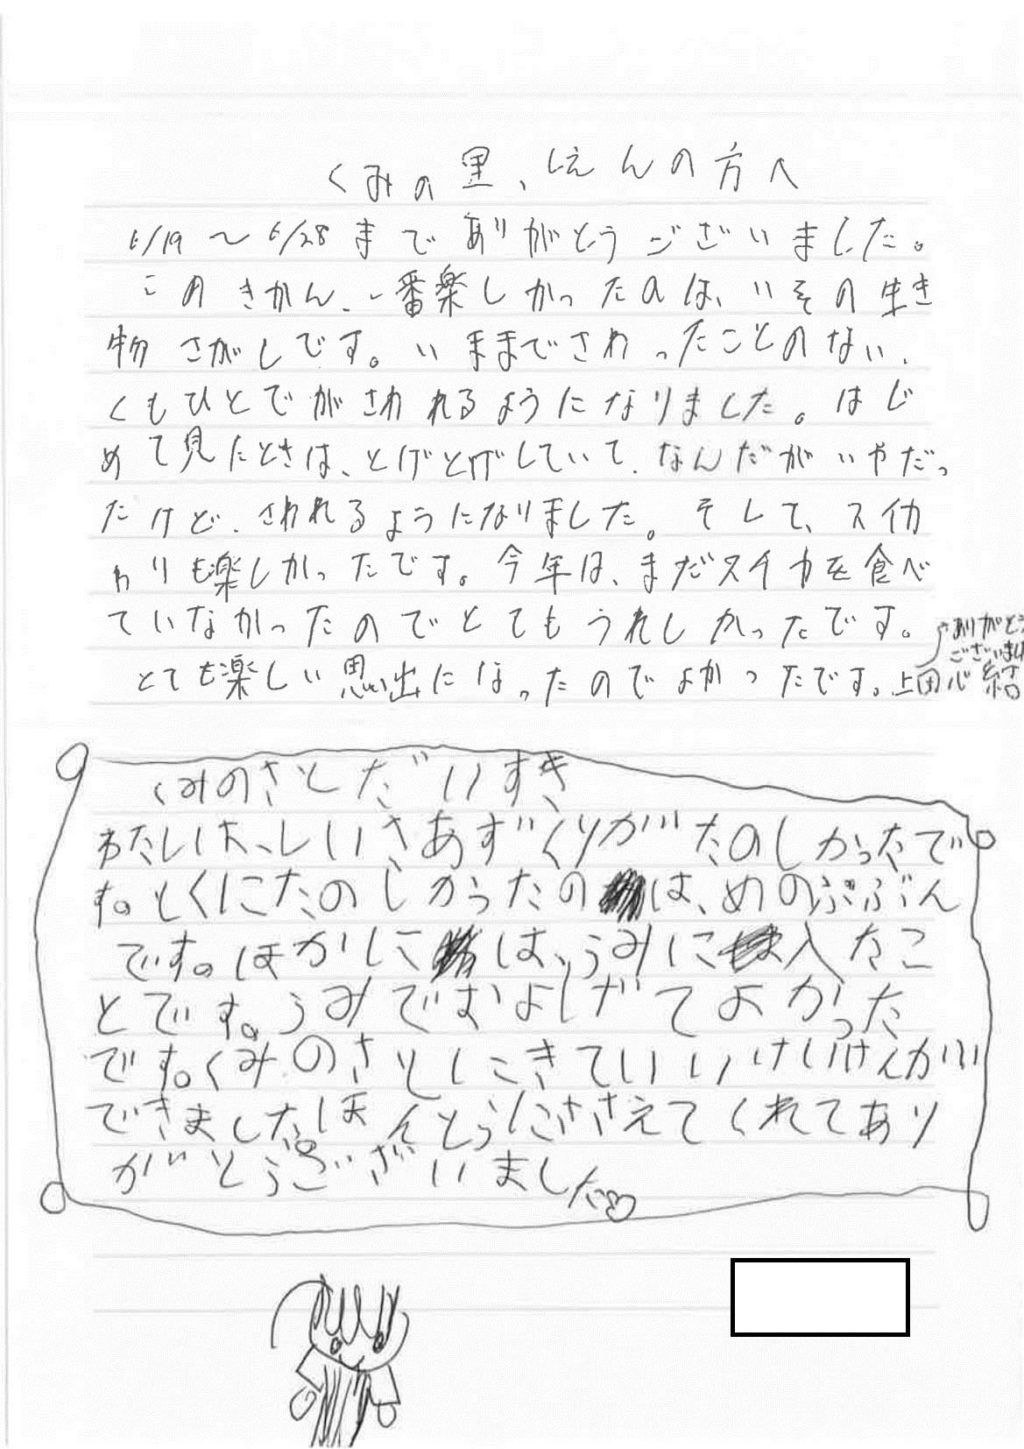 くみの里、しえんの方へ
6/19〜6/28までありがとうございました。
このきかん、一番楽しかったのは、いその生き
物さがしです。いままでさわったことのない、
くもひとでがさわれるようになりました。はじ
めて見たときは、とげとげしていて、なんだがいやだっ
たけど、さわれるようになりました。そして、スイカ
わりも楽しかったです。今年は、まだスイカを食べ
ていなかったのでとてもうれしかったです。
ありがとう
ございました
とても楽しい思い出になったのでよかったです。上田心結
くみのさとだいすき
わたしは、しいさあずくりがたのしかったで
す。とくにたのしかうたのは、めのぶぶん
です。ほかには、うみに入たこ
とです。うみでおよしげてよかった
です。くみのさとにきていいけいけんが
できました。ほんとうにささえてくれてあり
がとうございました